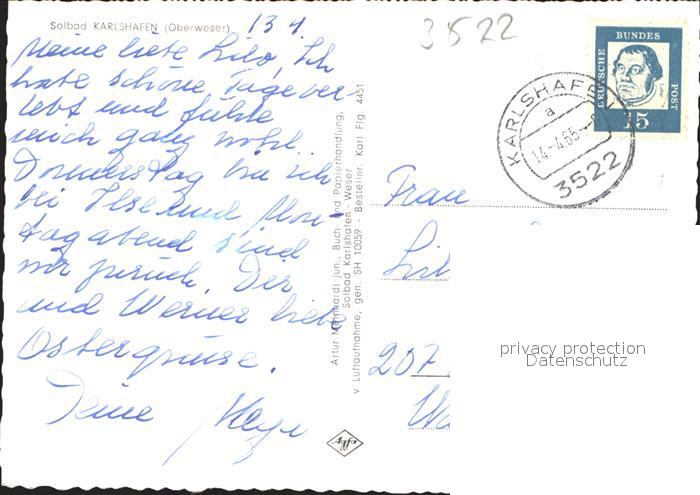 Solbad KARLSHAFEN (Oberweser)
13 4.
3522
Meine liebe Lilo, Ich
habe schöne Tage ver-
lebt und fühle
mich ganz wohl.
Donnerstag bin ich
bei Ilse und Mon-
tag abend sind
wir zurück. Dir
und Werner liebe
Ostergrüsse.
Deine
Artur Meinhardt jun., Buch- und Papierhandlung,
Solbad Karlshafen - Weser
v. Luftaufnahme, gen. SH 10059 · Bestellnr. Karl Flg. 4451
DEUTSCHE BUNDES POST
15
KARLSHAFEN
a
14.-4.65
3522
Frau
207
privacy protection
Datenschutz